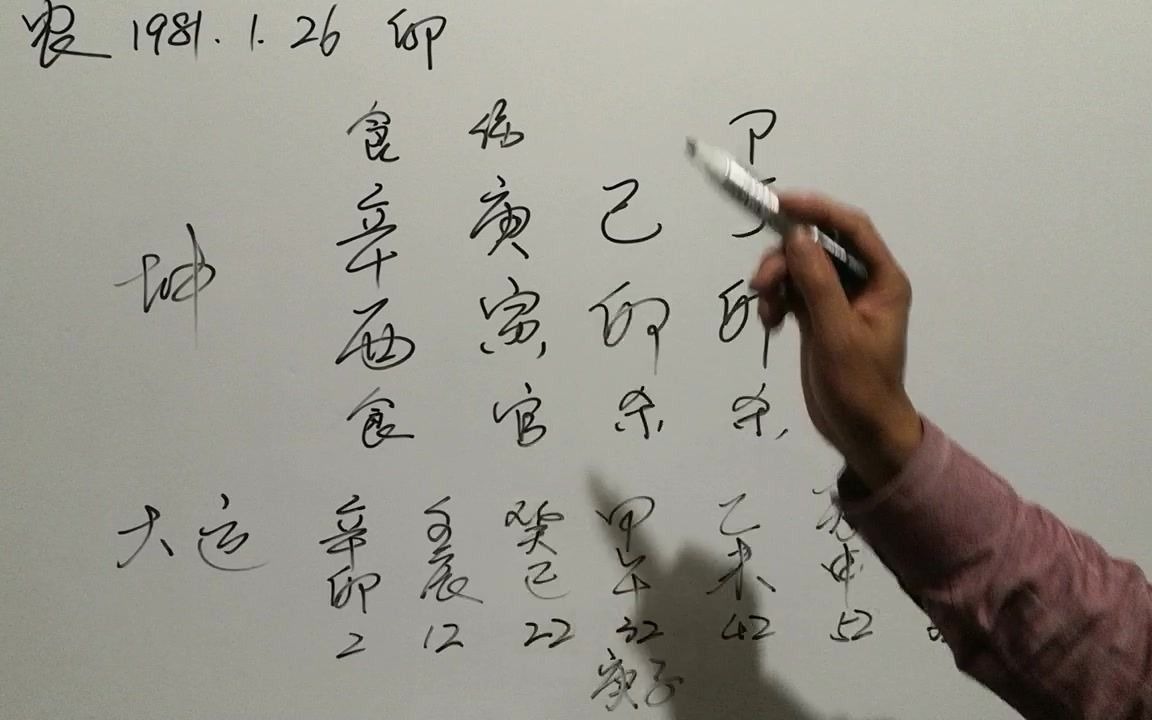 农 1981.1.26 卯
食 伤 卩
辛 庚 己
坤
酉 寅 卯 卯
食 官 杀 杀
大运 辛 壬 癸 甲 乙
卯 辰 巳 午 未 申
2 12 22 32 42 52
庚子